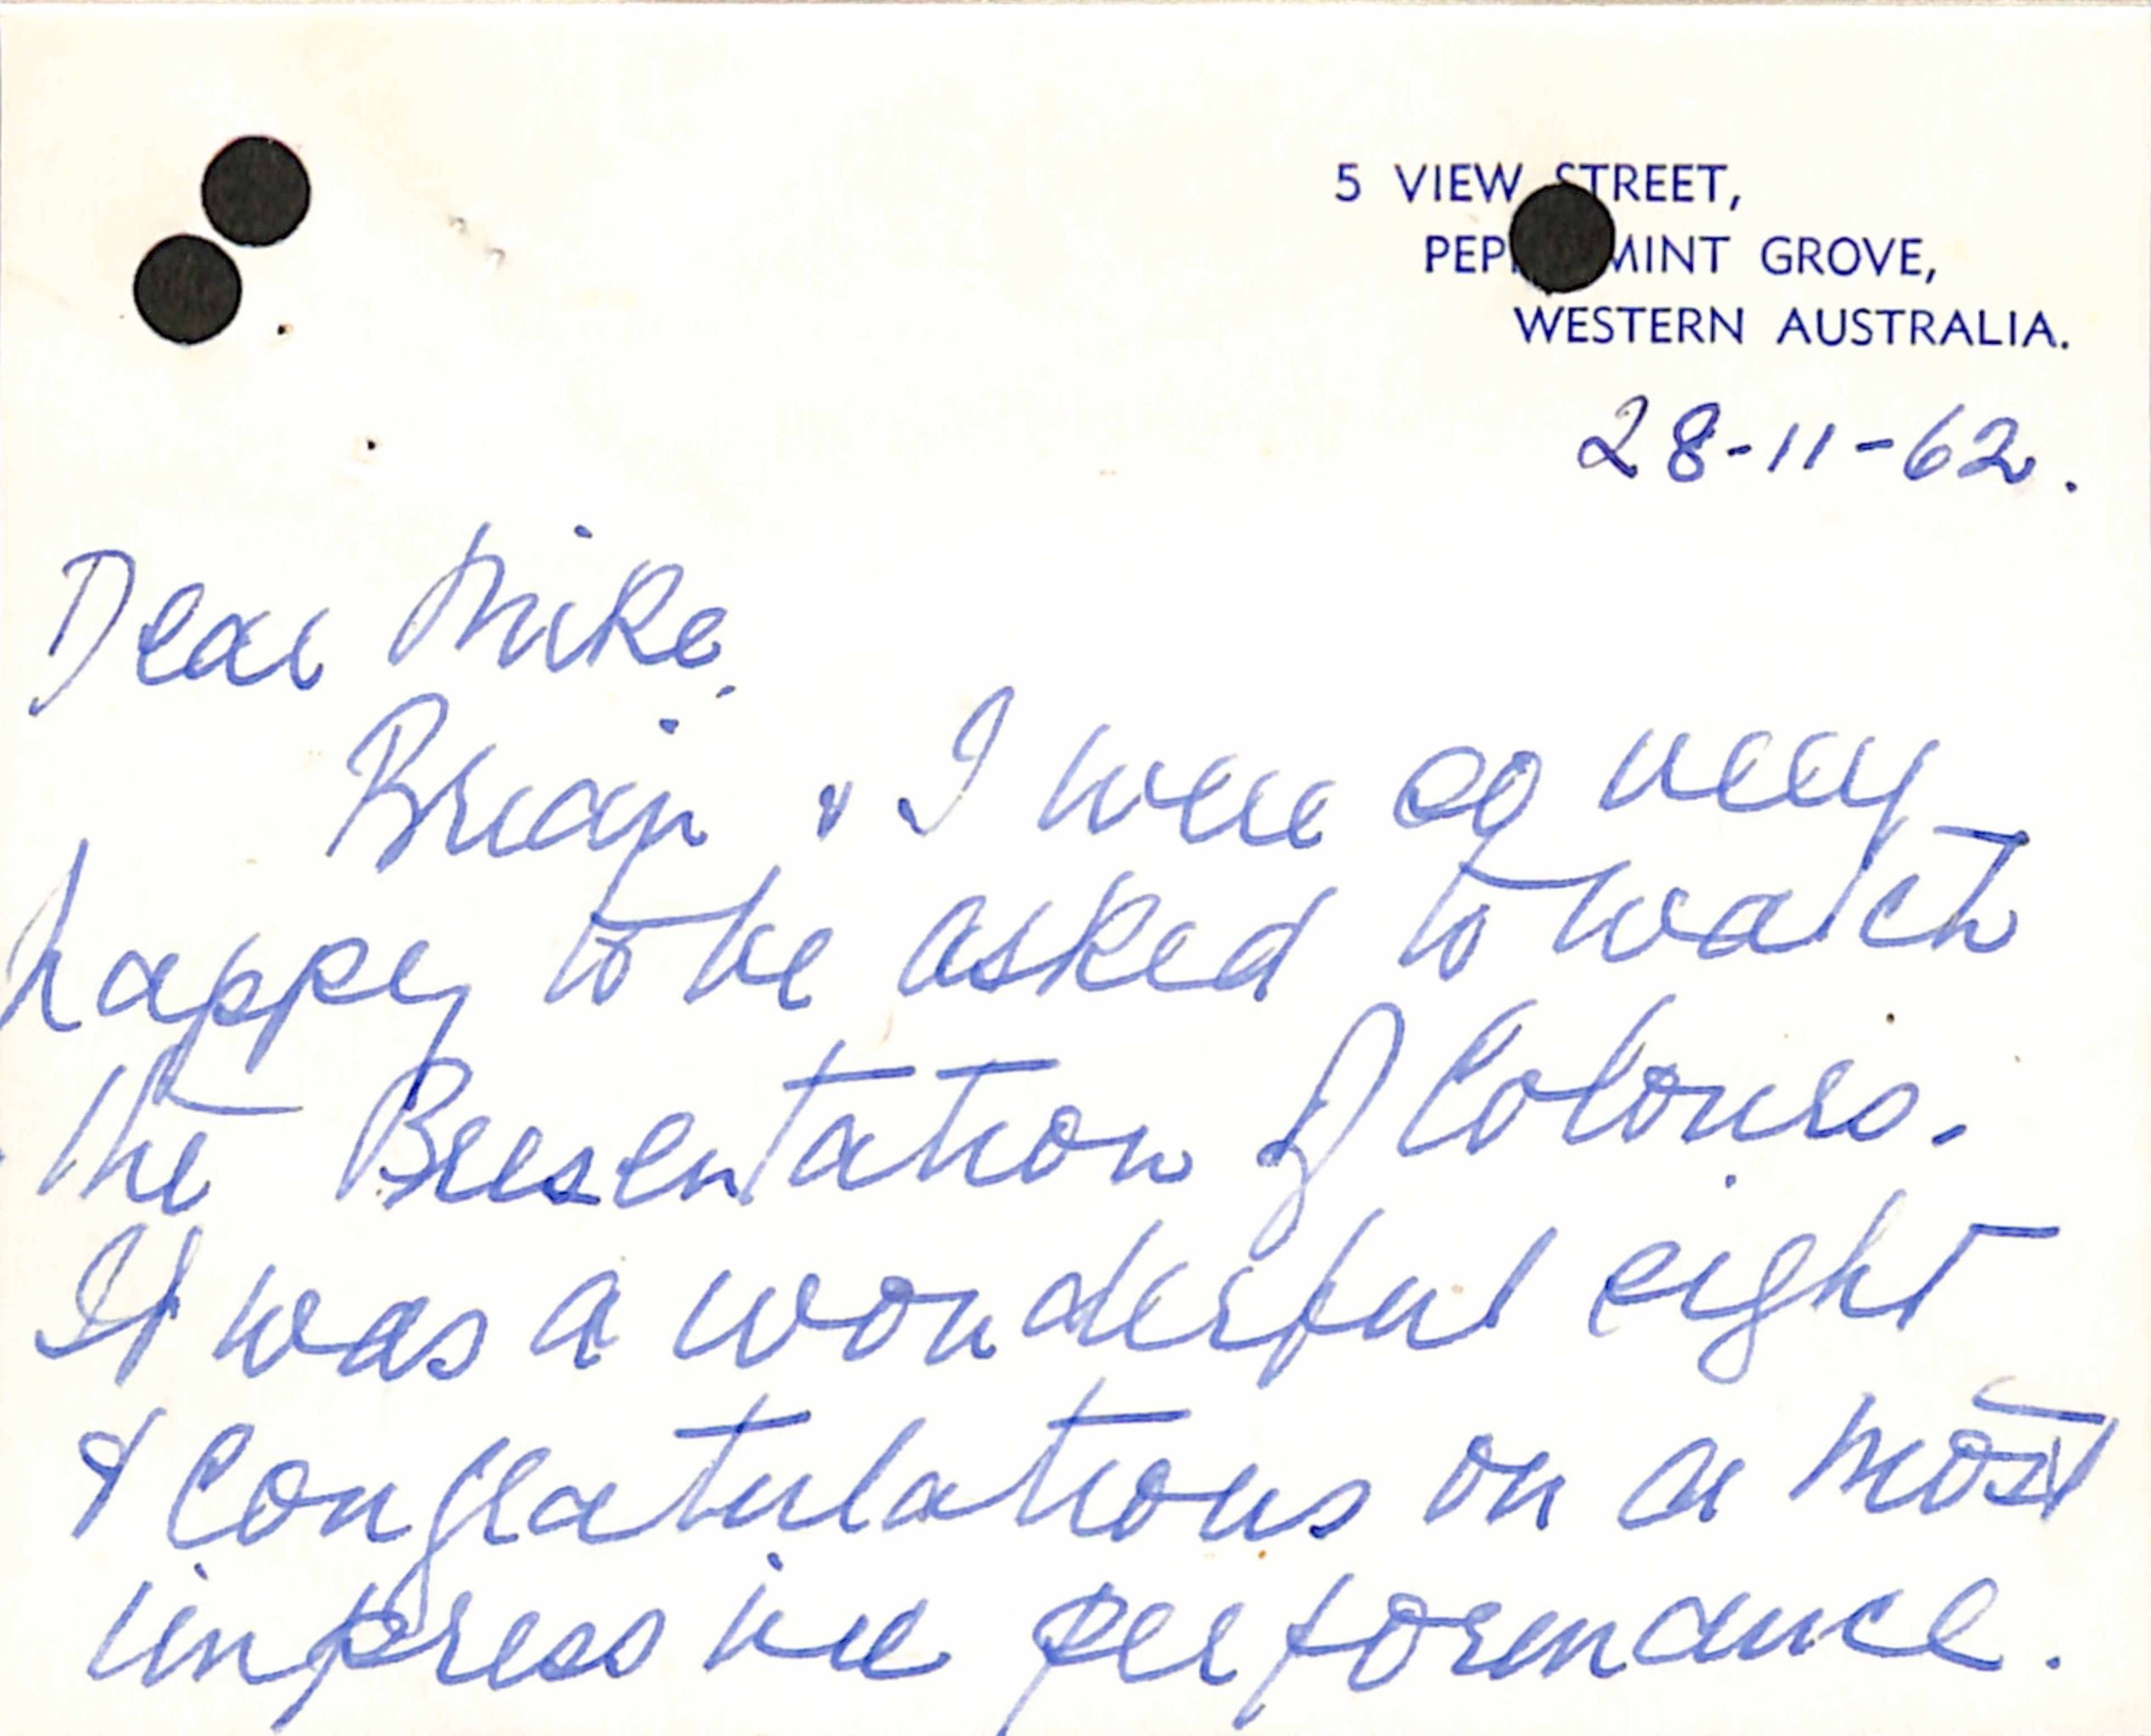 5 VIEW STREET,
PEPPERMINT GROVE,
WESTERN AUSTRALIA.
28-11-62.
Dear Mike,
Brian & I were so very
happy to be asked to watch
the Presentation of Colours.
It was a wonderful sight
& Congratulations on a most
impressive performance.